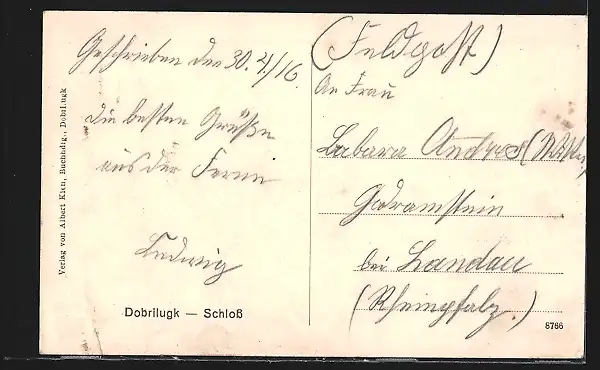 Geschrieben den 30. 4./16.
die besten Grüße
aus der Ferne
Ludwig
Verlag von Albert Klen, Buchhdlg., Dobrilugk
Dobrilugk — Schloß
(Feldpost)
An Frau
Andres
Godramstein
bei Landau
(Rheinpfalz.)
8766